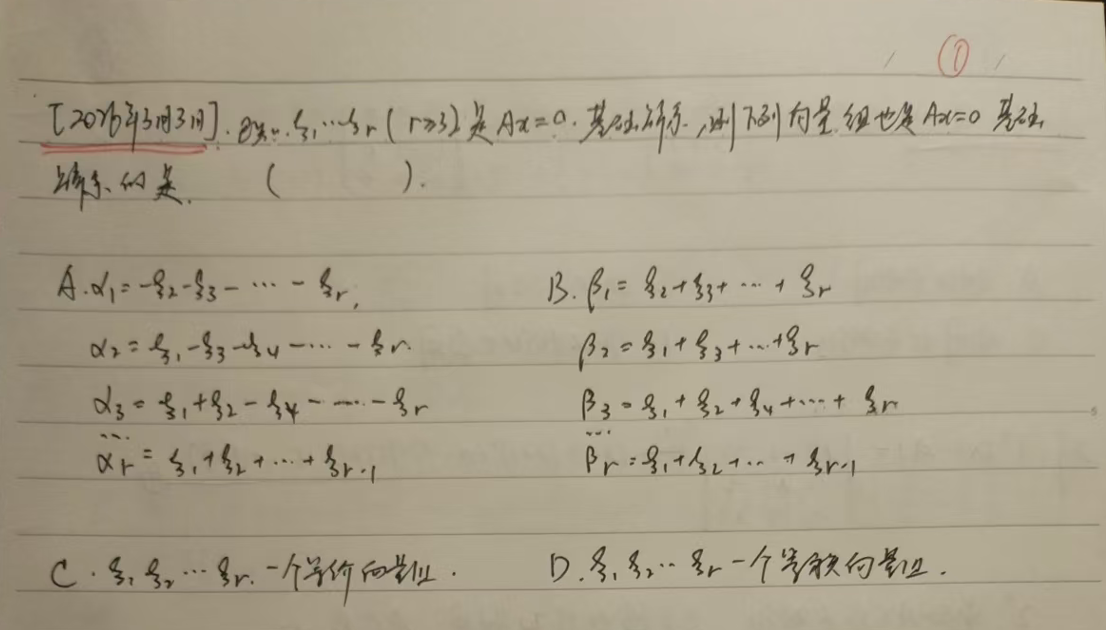 ①
[2026年3月3日]. 已知 ξ₁⋯ξr (r≥3) 是 Ax=0. 基础解系, 则下列向量组也是 Ax=0 基础
解系的是 ( ).
A. α₁=-ξ₂-ξ₃-⋯-ξr, B. β₁=ξ₂+ξ₃+⋯+ξr
α₂=ξ₁-ξ₃-ξ₄-⋯-ξr β₂=ξ₁+ξ₃+⋯+ξr
α₃=ξ₁+ξ₂-ξ₄-⋯-ξr β₃=ξ₁+ξ₂+ξ₄+⋯+ξr
⋯ ⋯
αr=ξ₁+ξ₂+⋯+ξr-1 βr=ξ₁+ξ₂+⋯+ξr-1
C. ξ₁ ξ₂⋯ξr. 一个等价向量组. D. ξ₁ ξ₂⋯ξr 一个等秩向量组.